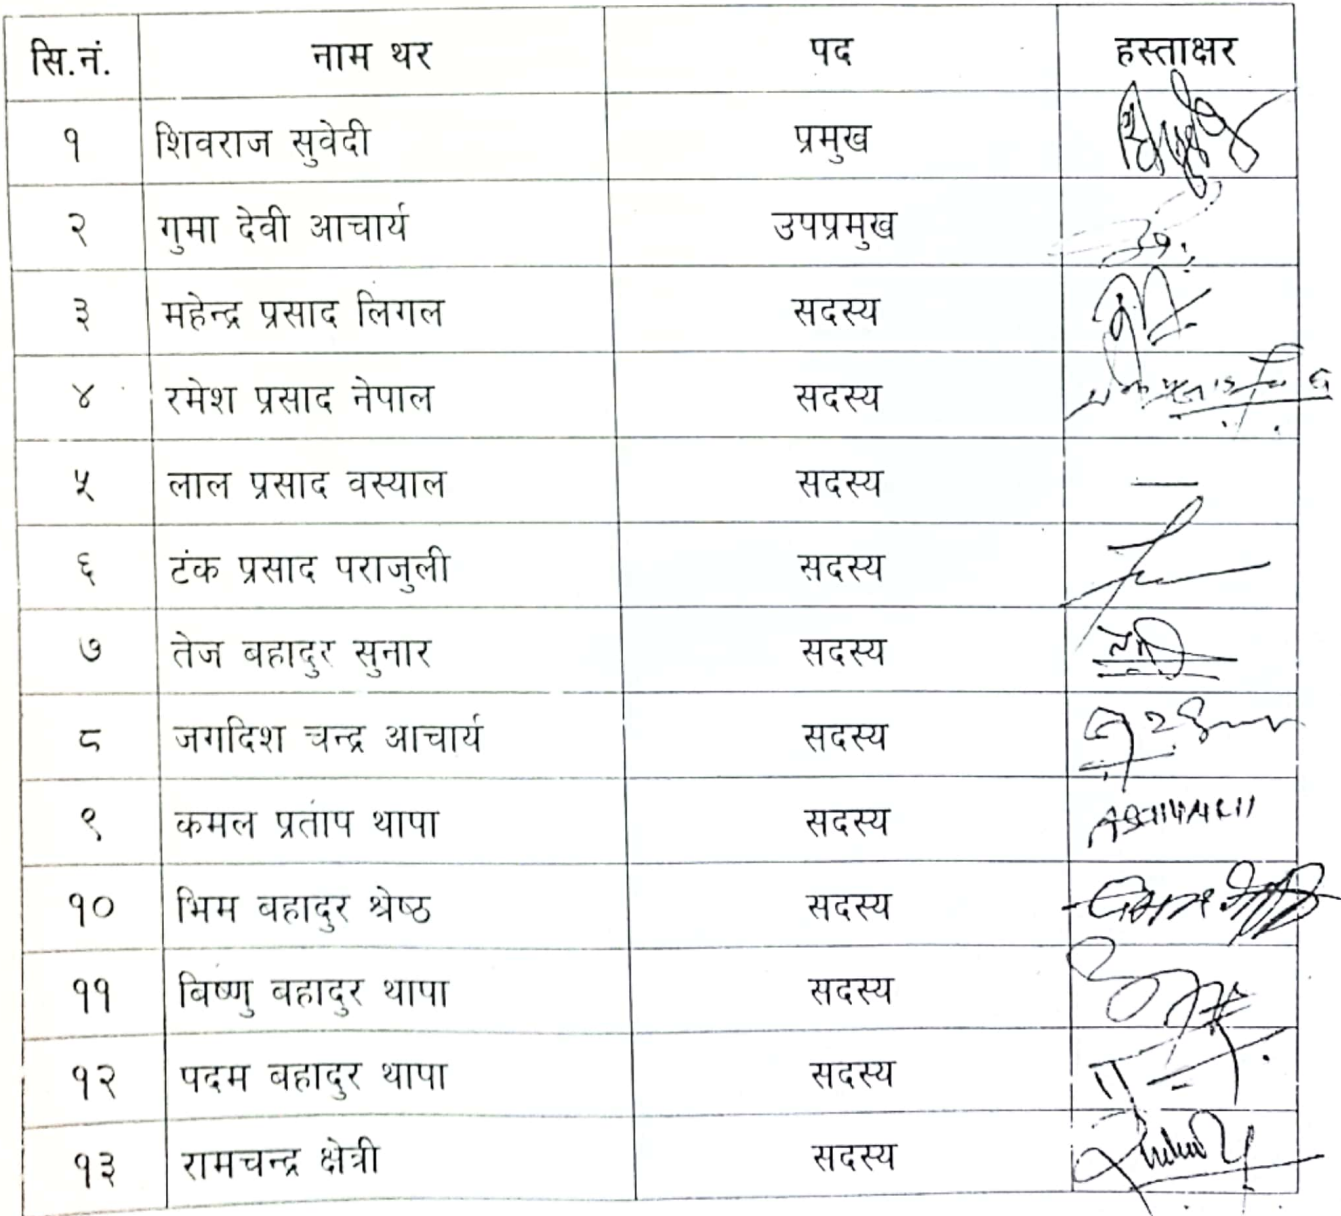 सि.नं. नाम थर पद हस्ताक्षर
१ शिवराज सुवेदी प्रमुख
२ गुमा देवी आचार्य उपप्रमुख
३ महेन्द्र प्रसाद लिगल सदस्य
४ रमेश प्रसाद नेपाल सदस्य
५ लाल प्रसाद वस्याल सदस्य —
६ टंक प्रसाद पराजुली सदस्य
७ तेज बहादुर सुनार सदस्य
८ जगदिश चन्द्र आचार्य सदस्य
९ कमल प्रताप थापा सदस्य
१० भिम वहादुर श्रेष्ठ सदस्य
११ विष्णु वहादुर थापा सदस्य
१२ पदम बहादुर थापा सदस्य
१३ रामचन्द्र क्षेत्री सदस्य